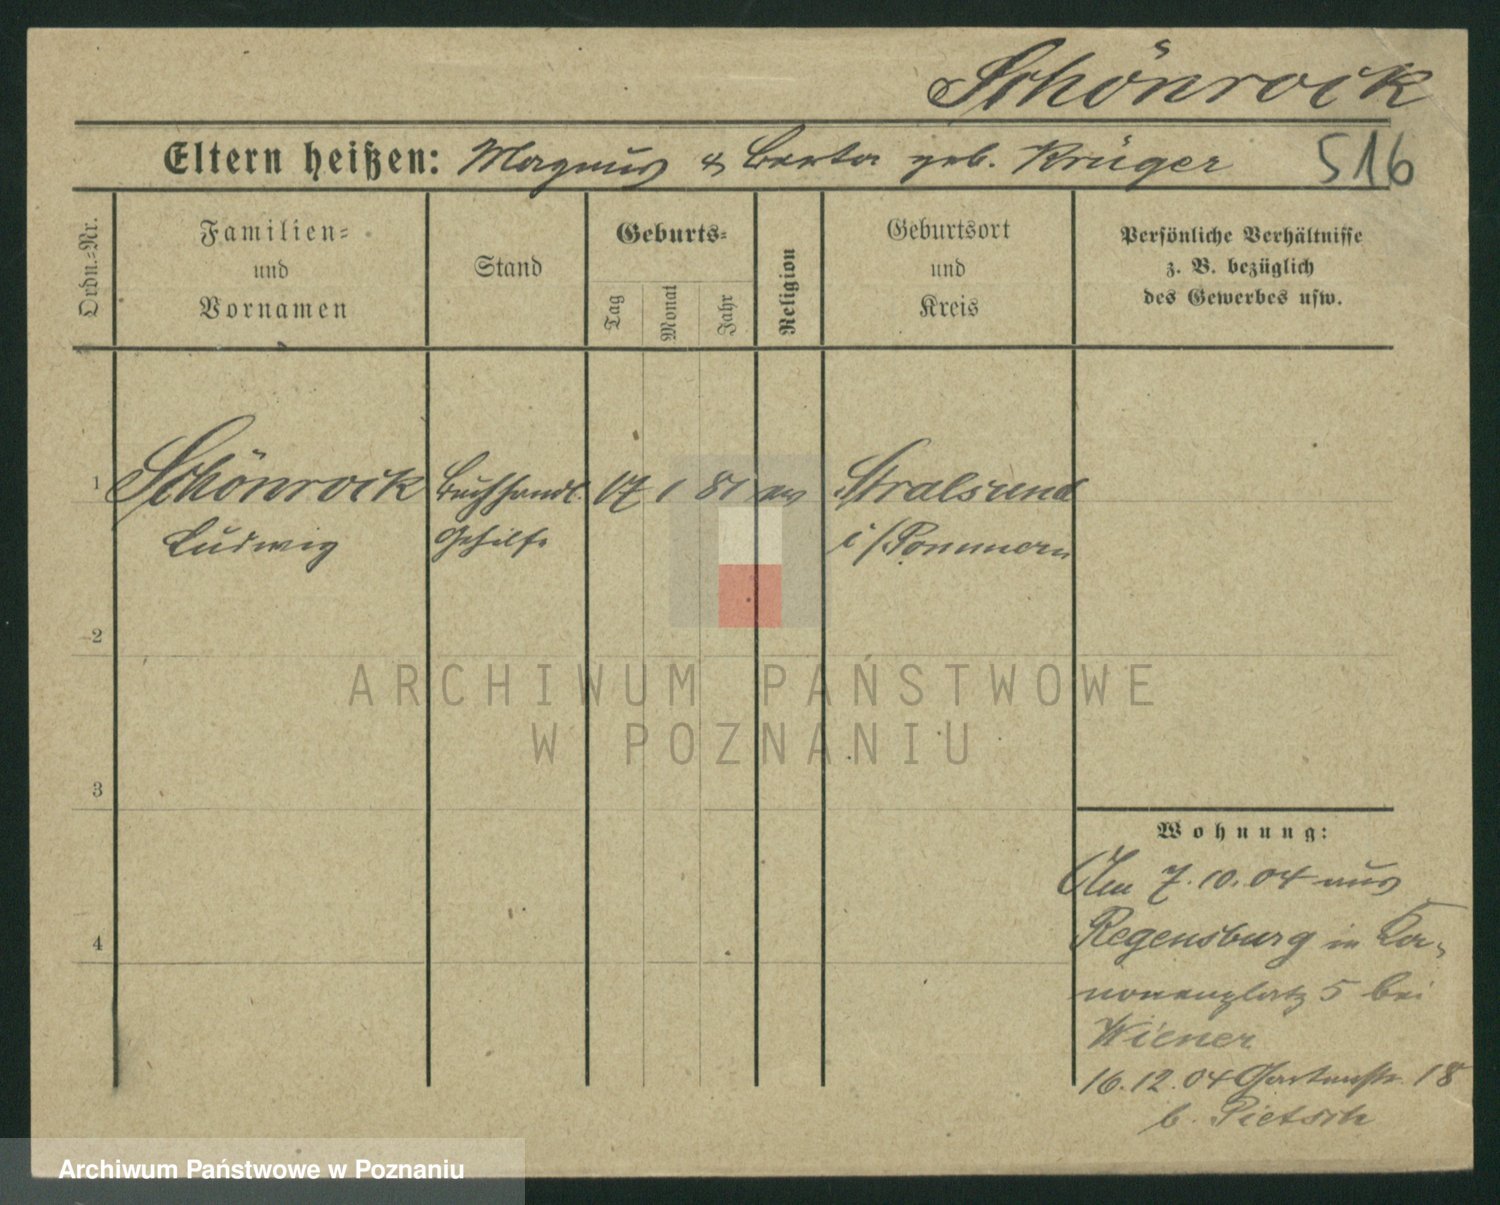 Schönrock
Eltern heißen: Magnus & Berta geb. Krüger 516
Ordn.=Nr.
Familien=
und
Vornamen
Stand
Geburts=
Tag
Monat
Jahr
Religion
Geburtsort
und
Kreis
Persönliche Verhältnisse
z. B. bezüglich
des Gewerbes usw.
1 Schönrock Buchhandl. 17 1 81 ev Stralsund
Ludwig Gehilfe i/Pommern
2
3
4
Wohnung:
Am 7.10.04 aus
Regensburg in Ka-
nonenplatz 5 bei
Wiener
16.12.04 Gartenstr. 18
b. Pietsch
ARCHIWUM PAŃSTWOWE
W POZNANIU
Archiwum Państwowe w Poznaniu